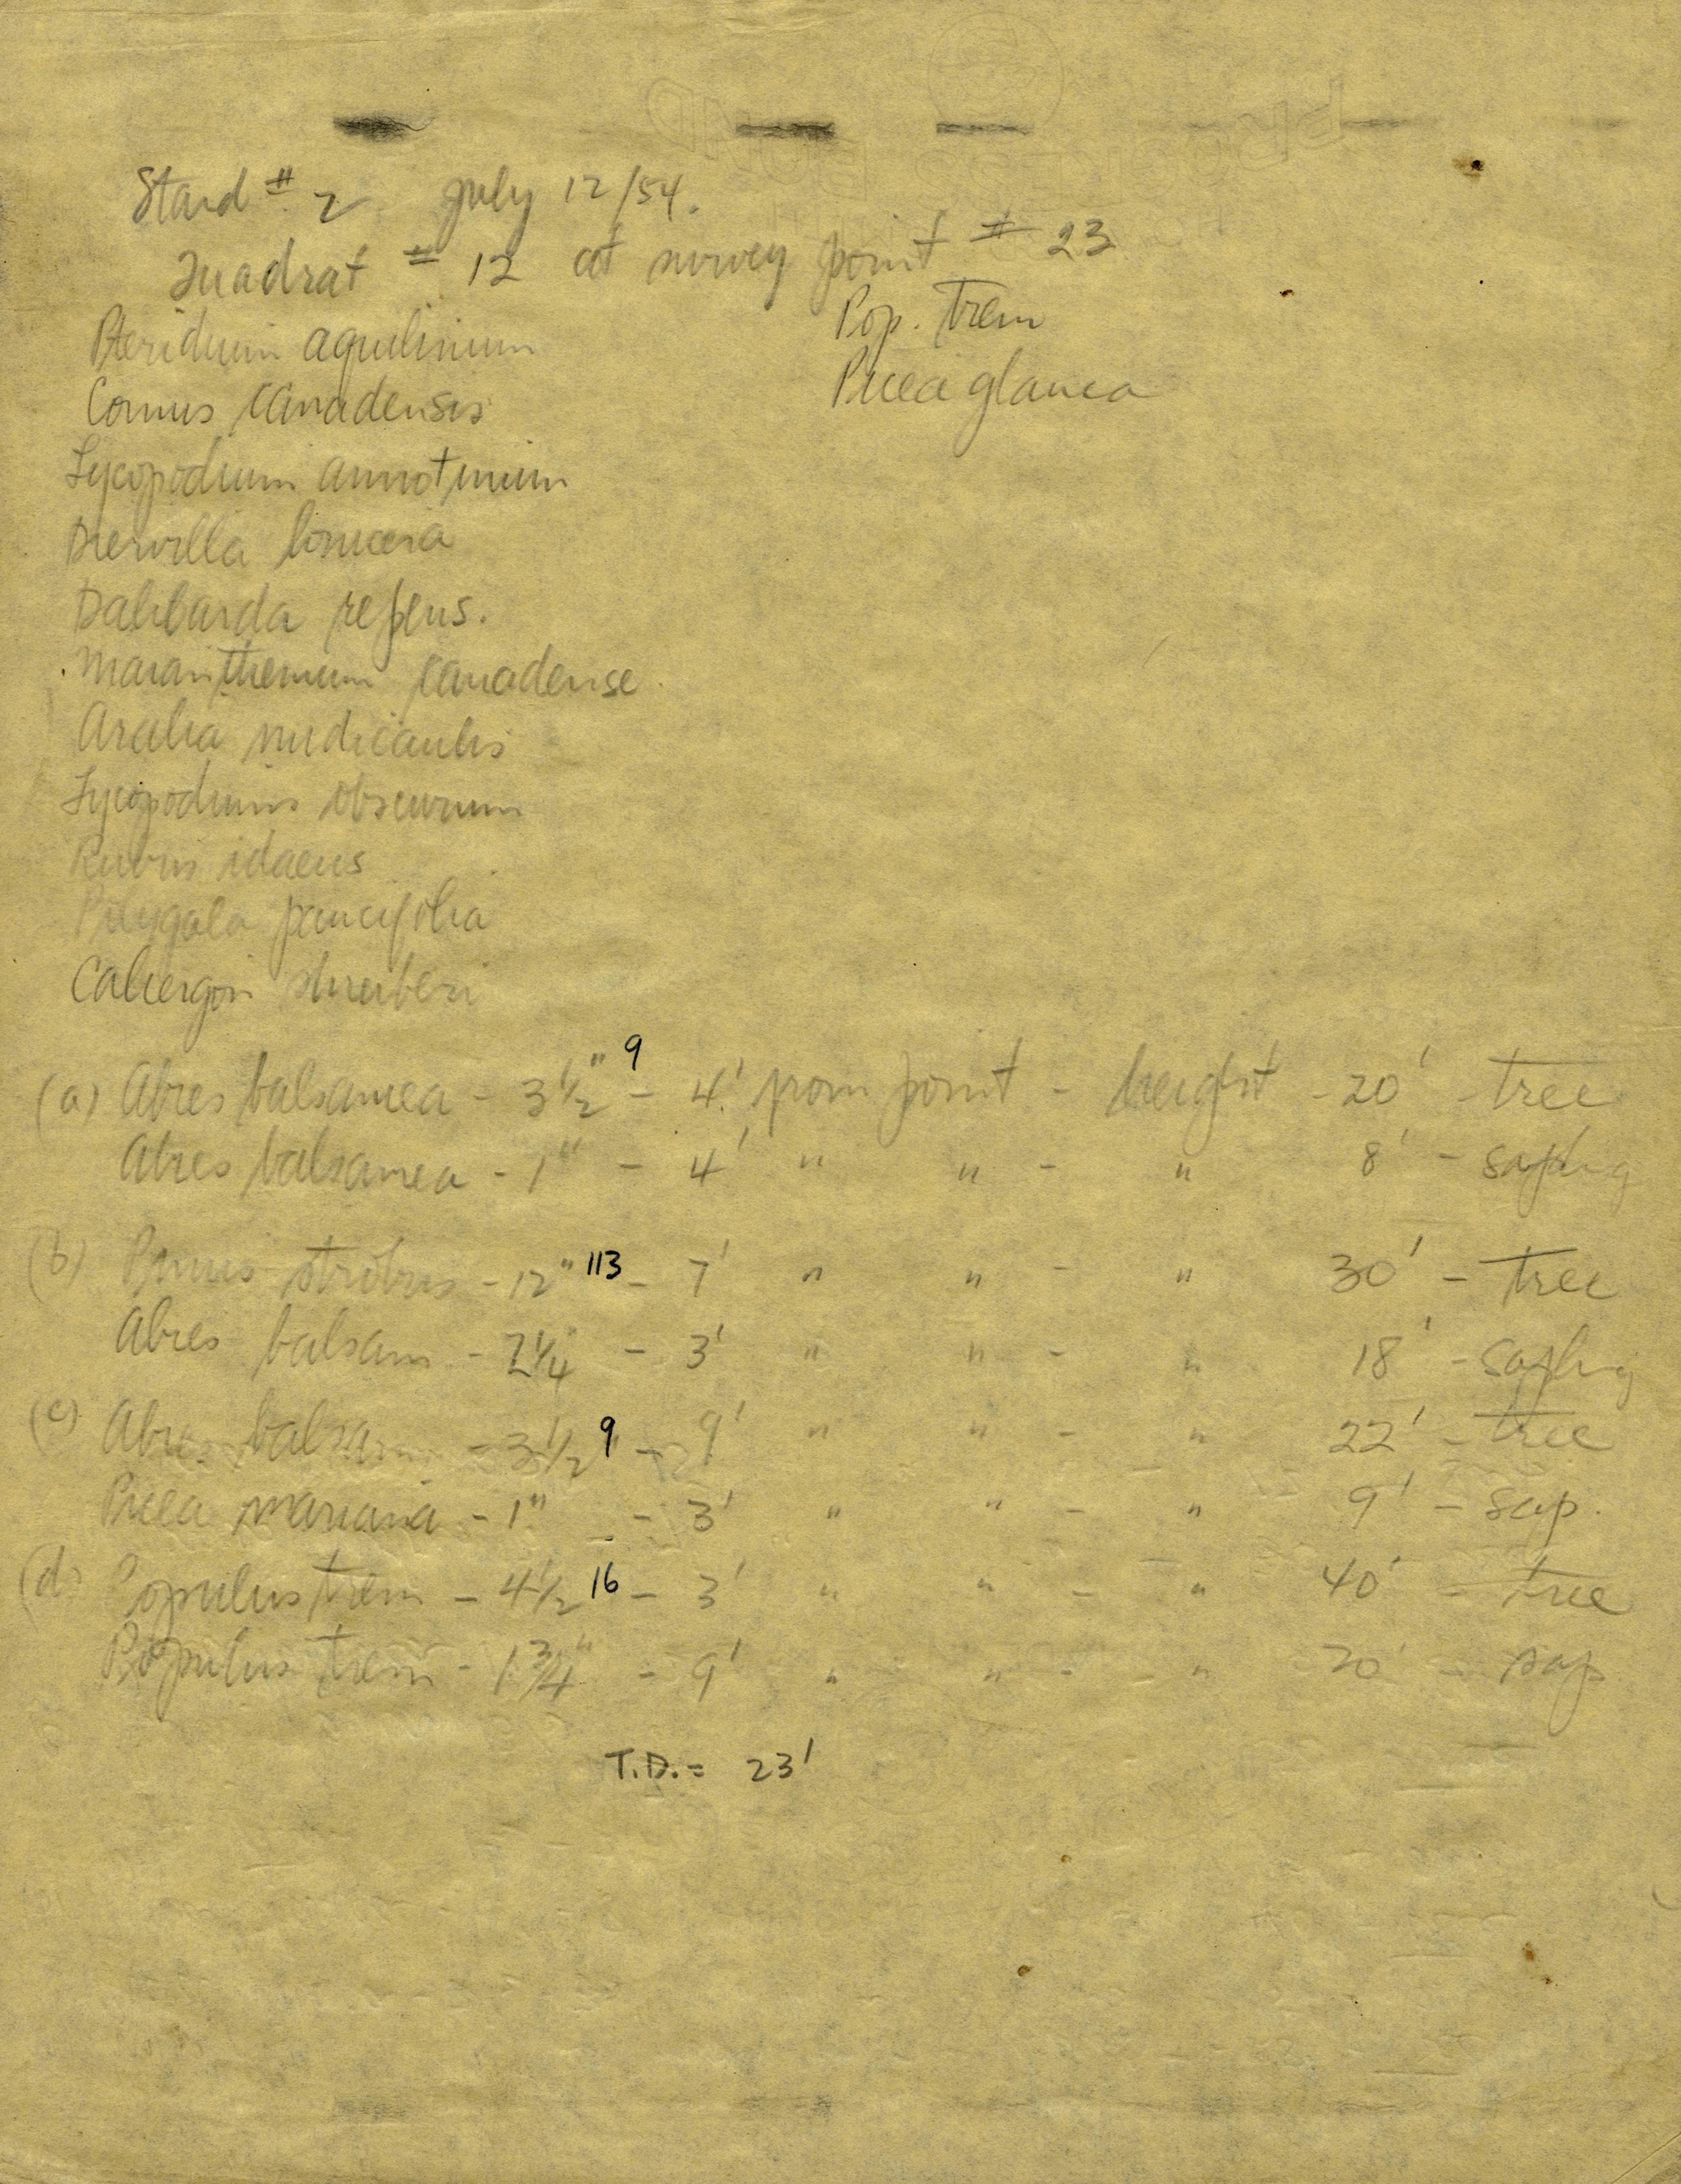 Stand # 2 July 12/54.
Quadrat # 12 at survey point # 23
Pop. trem
Picea glauca
Pteridium aquilinum
Cornus canadensis
Lycopodium annotinum
Diervilla lonicera
Dalibarda repens.
Maianthemum canadense
Aralia nudicaulis
Lycopodium obscurum
Rubus idaeus
Polygala paucifolia
Caliergon shreiberi
(a) Abies balsamea - 3 1/2" 9 - 4' from point - height - 20' - tree
Abies balsamea - 1" - 4' " " - " 8' - sapling
(b) Pinus strobus - 12" 113 - 7' " " - " 30' - tree
Abies balsam - 2 1/4" - 3' " " - " 18' - sapling
(c) Abies balsam - 3 1/2" 9 - 9' " " - " 22' - tree
Picea mariana - 1" - 3' " " - " 9' - sap.
(d) Populus trem - 4 1/2 16 - 3' " " - " 40' - tree
Populus trem - 1 3/4" - 9' " " - " 20' - sap
T.D. = 23'